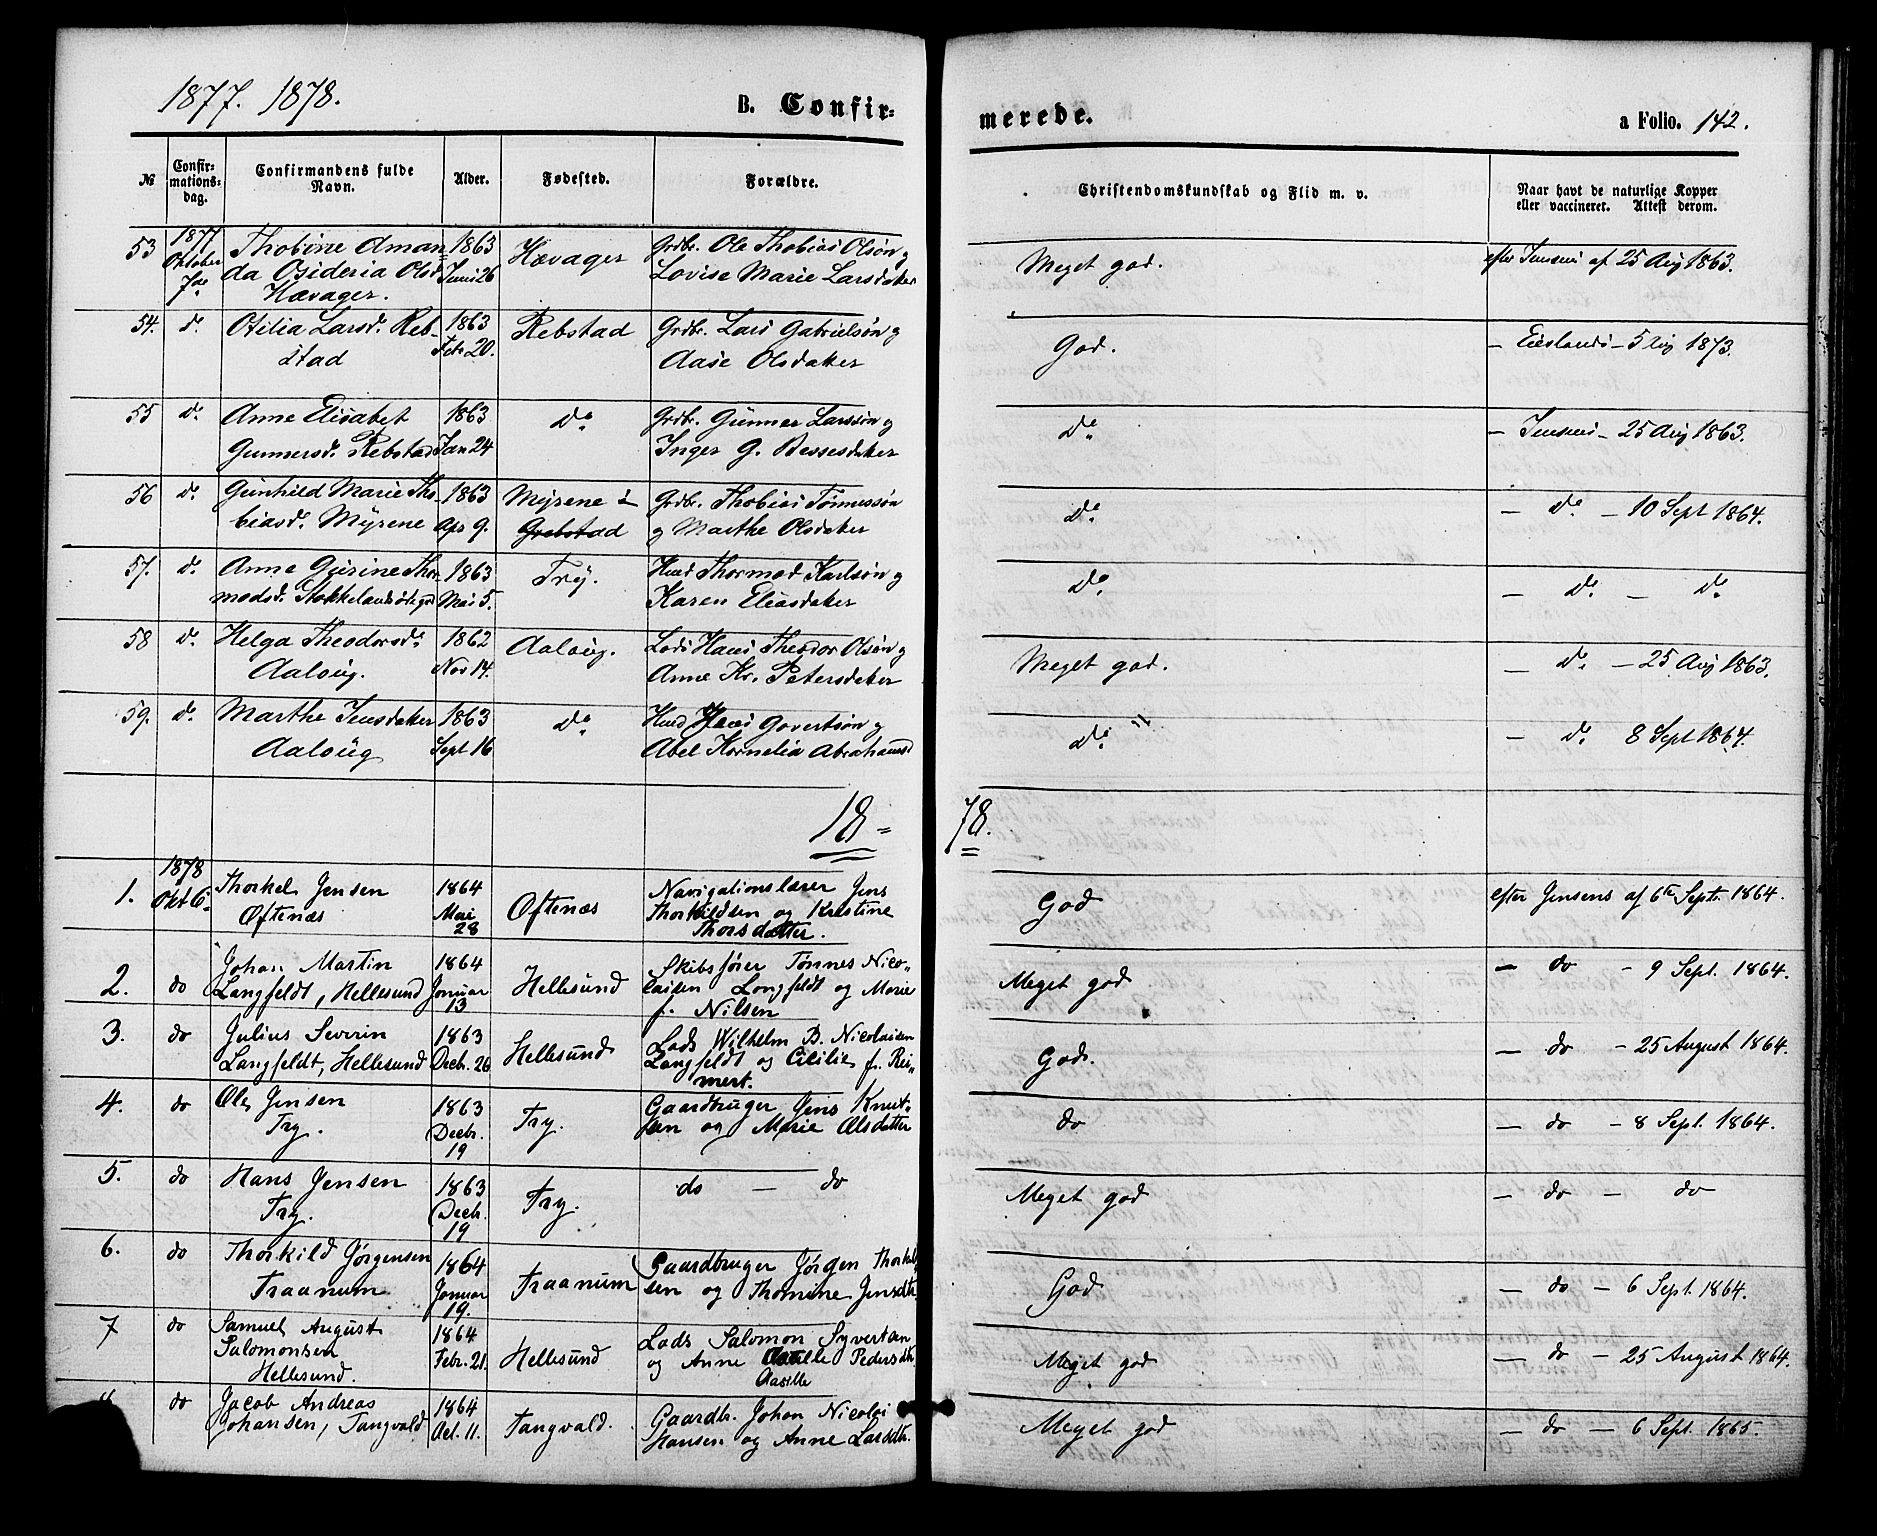 1877. 1878.
B. Confir-
merede.
a Folio. 142.
№ Confirmationsdag. Confirmandens fulde Navn. Alder. Fødested. Forældre. Christendomskundskab og Flid m. v. Naar havt de naturlige Kopper eller vaccineret. Attest derom.
53 1877 Oktober 7de Thobine Amanda Osideria Olsd. Hævager. 1863 Juni 26 Hævager Grdbr. Ole Thobias Olsøn og Lovise Marie Larsdatter Meget god. efter Jensens af 25 Aug 1863.
54. do Otilia Larsd. Rebstad 1863 Feb 20. Rebstad Grdbr. Lars Gabrielsøn og Aase Olsdatter God. – Eieslands – 5 Aug 1873.
55 do Anne Elisabet Gunnersd. Rebstad 1863 Jan 24 do Grdbr. Gunner Larssøn og Inger G. Bessesdatter do – Jensens – 25 Aug 1863.
56 do Gunhild Marie Thobiasd. Myrene 1863 Apr 9. Myrene i Grebstad Grdbr. Thobias Tønnessøn og Marthe Olsdatter do – do – 10 Sept 1864.
57. do Anne Gurine Thormodsd. 1863 Mai 5. Try. Husd Thormod Karlsøn og Karen Eliasdatter do – do – do
58 do Helga Theodorsd. Aaloug. 1862 Nov 14. Aaloug. Lods Hans Theodor Olsøn og Anne Kr. Petersdatter Meget god. – do – 25 Aug 1863.
59. do Marthe Jensdatter Aaloug 1863 Sept 16 do Husd Jens Govertsøn og Abel Kornelia Abrahamsd do – do 8 Sept 1864.
18-
78.
1. 1878 Okt 6. Thorkel Jensen Øftenæs 1864 Mai 28 Øftenæs Navigationslærer Jens Thorkildsen og Kristine Thorsdatter. God efter Jensens af 6te Septr. 1864.
2. do Johan Martin Langfeldt, Hellesund 1864 Januar 13 Hellesund Skibsfører Tønnes Nicolaisen Langfeldt og Marie f. Nilsen Meget god – do – 9 Sept. 1864.
3. do Julius Severin Langfeldt, Hellesund 1863 Decb. 26 Hellesund Lods Wilhelm B. Nicolaisen Langfeldt og Cicilie f. Reimert. God. – do – 25 August 1864.
4. do Ole Jensen Try. 1863 Decbr. 19 Try. Gaardbruger Jens Knutsen og Marie Olsdatter do – do – 8 Sept. 1864.
5. do Hans Jensen Try. 1863 Decb. 19 Try. do – do Meget god – do – do
6. do Thorkild Jørgensen Traanum 1864 Januar 19. Traanum Gaardbruger Jørgen Thorkelsen og Thomine Jensdtr. God – do – 6 Sept. 1864.
7 do Samuel August Salomonsen Hellesund. 1864 Febr. 21. Hellesund Lods Salomon Syvertsen og Anne Aasille Pedersdtr Aasille Meget god – do – 25 August 1864.
do Jacob Andreas Johansen, Tangvald 1864 Oct. 11. Tangvald. Gaardbr. Johan Nicolai Hansen og Anne Larsdtr. Meget god – do – 6 Sept. 1865.